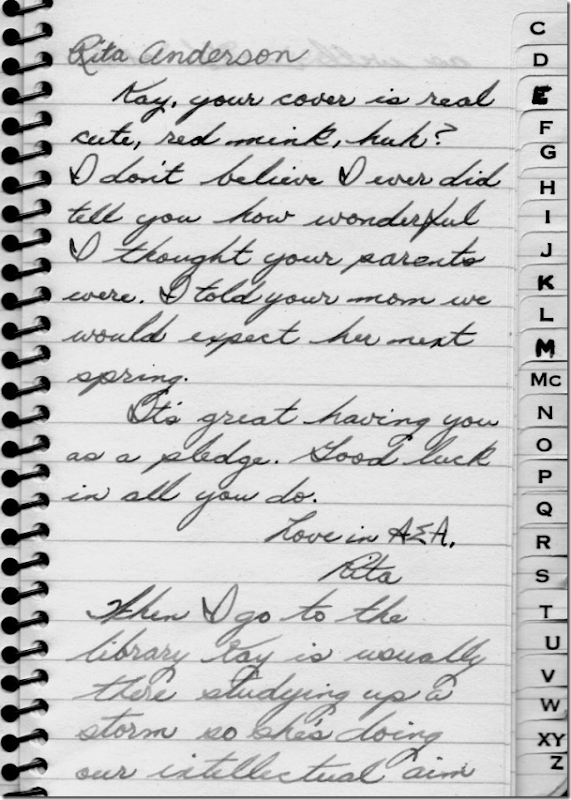 Rita Anderson
Kay, your cover is real
cute, red mink, huh?
I don't believe I ever did
tell you how wonderful
I thought your parents
were. I told your mom we
would expect her next
spring.
It's great having you
as a pledge. Good luck
in all you do.
Love in AΣA,
Rita
When I go to the
library Kay is usually
there studying up a
storm so she's doing
our intellectual aim
C
D
E
F
G
H
I
J
K
L
M
Mc
N
O
P
Q
R
S
T
U
V
W
XY
Z